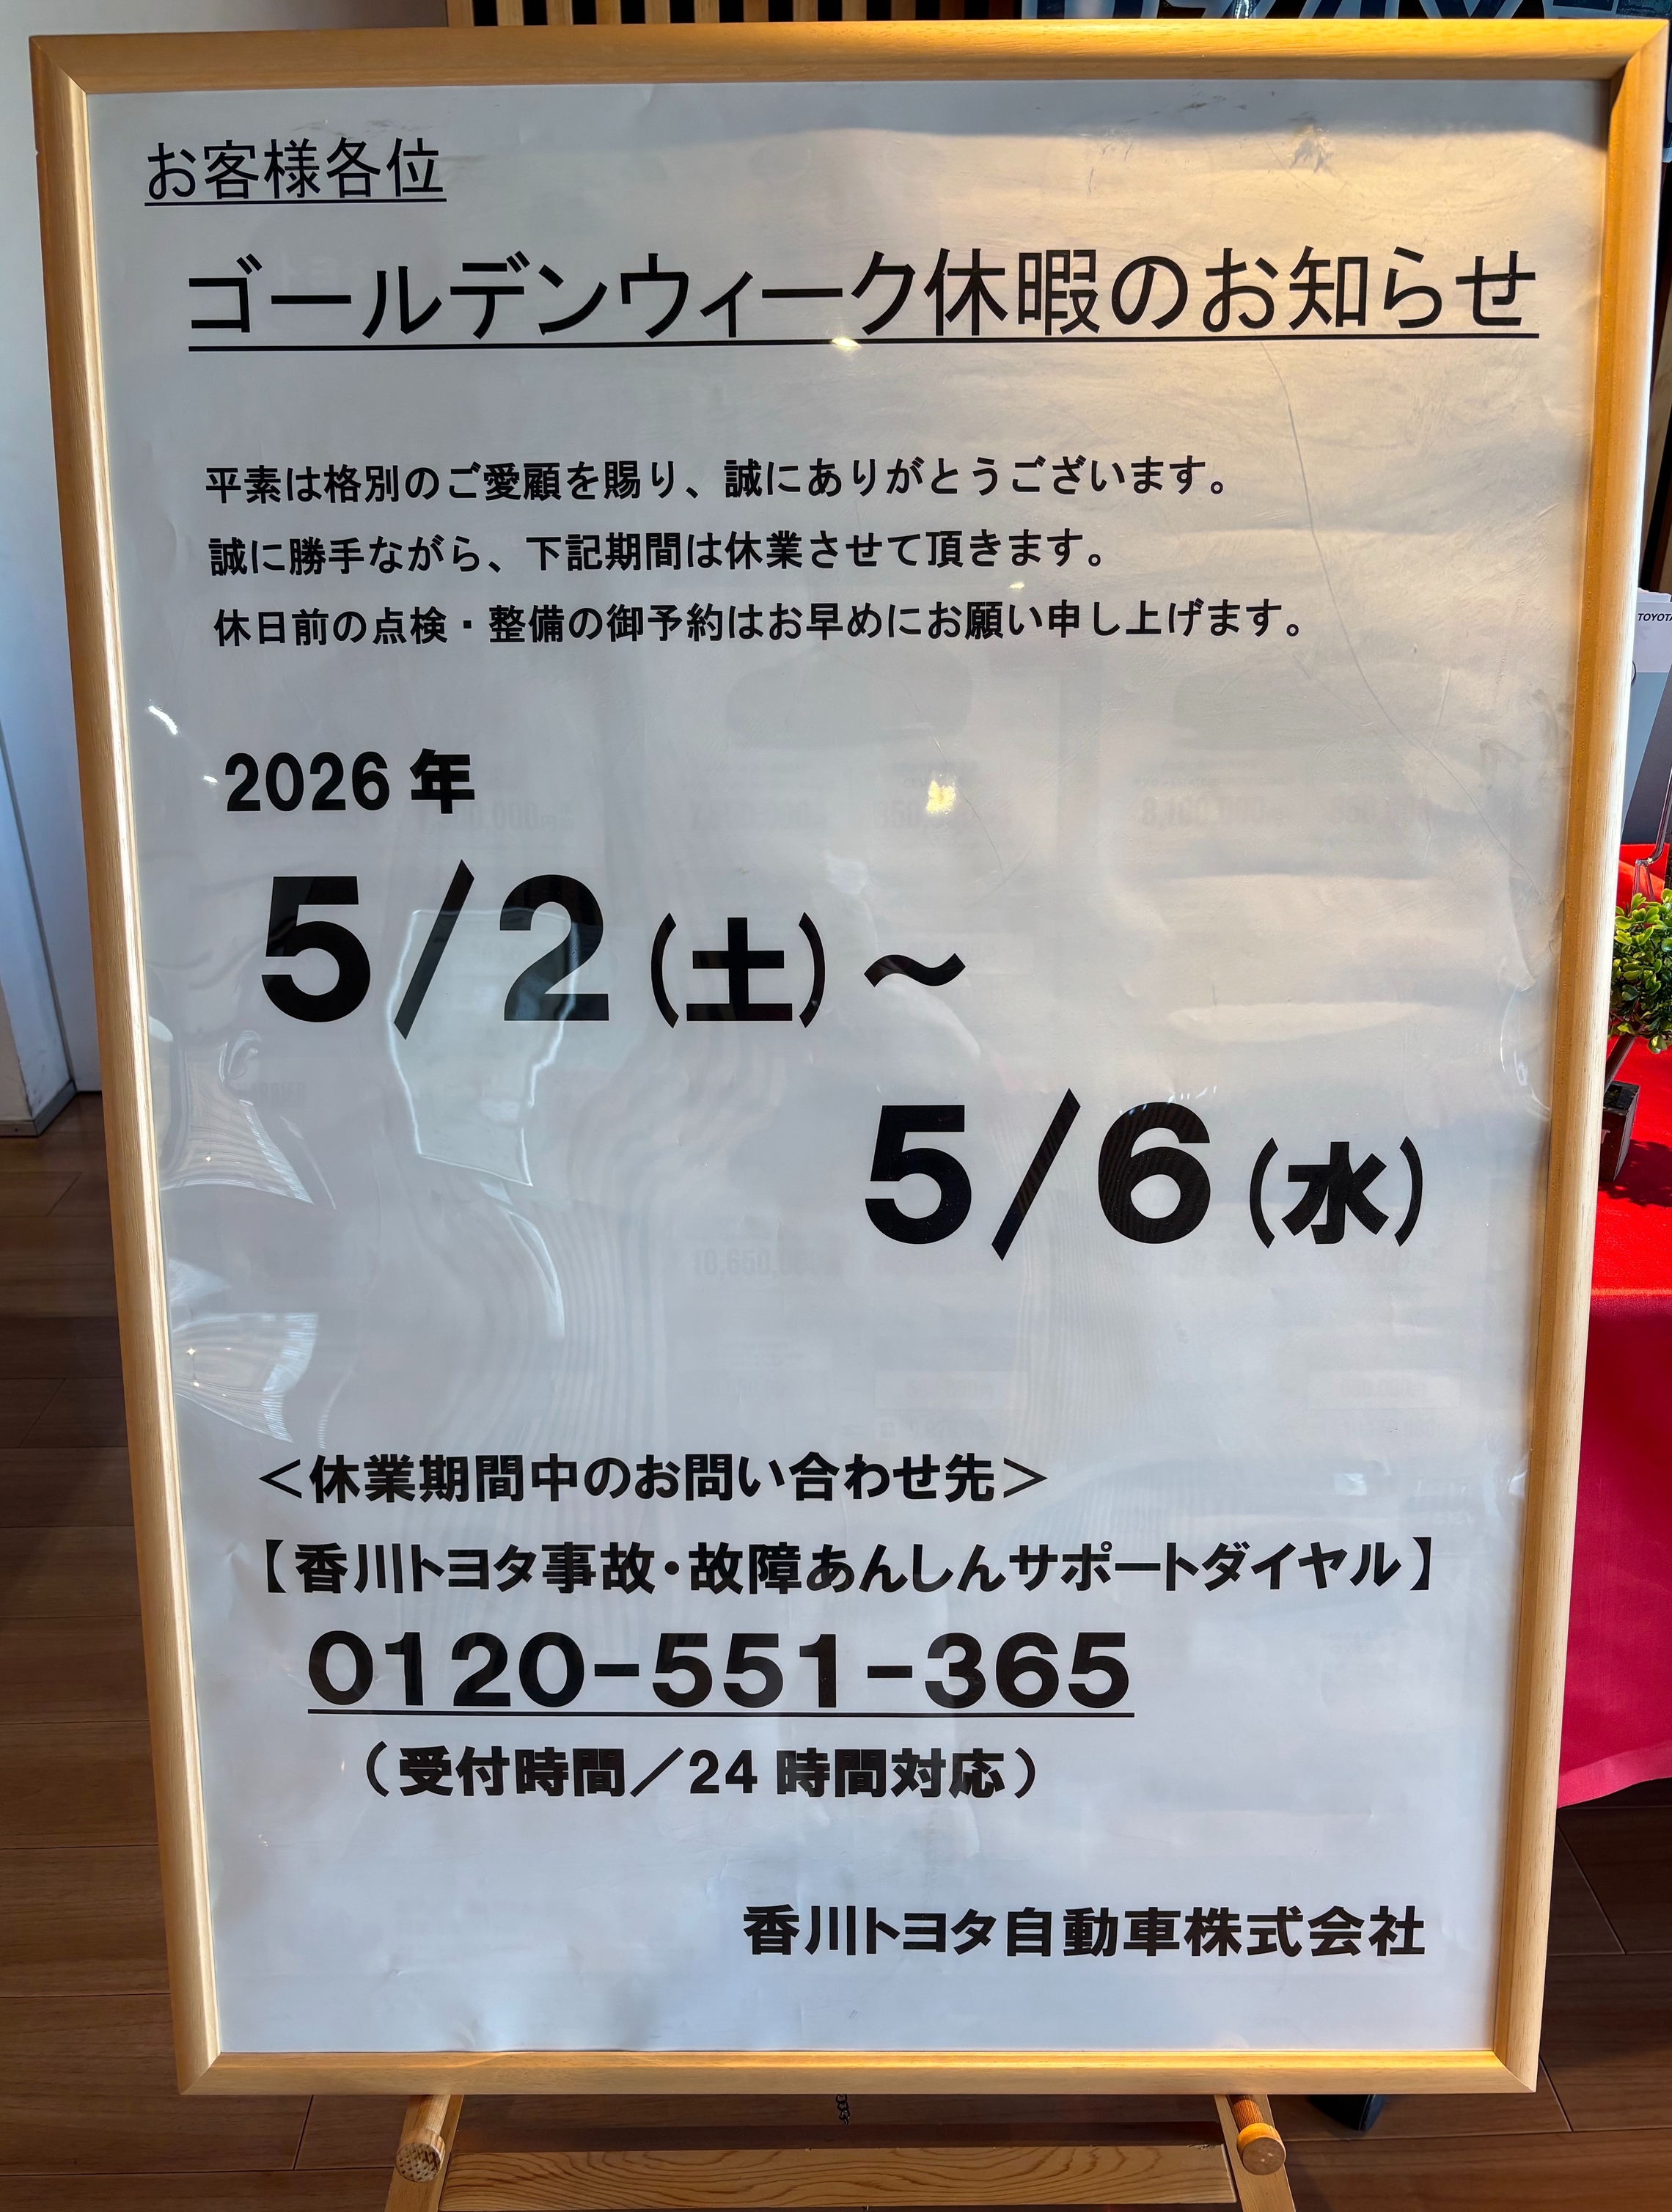 お客様各位
ゴールデンウィーク休暇のお知らせ
平素は格別のご愛顧を賜り、誠にありがとうございます。
誠に勝手ながら、下記期間は休業させて頂きます。
休日前の点検・整備の御予約はお早めにお願い申し上げます。
2026年
5/2(土)～
5/6(水)
＜休業期間中のお問い合わせ先＞
【香川トヨタ事故・故障あんしんサポートダイヤル】
0120-551-365
（受付時間／24時間対応）
香川トヨタ自動車株式会社
TOYOTA